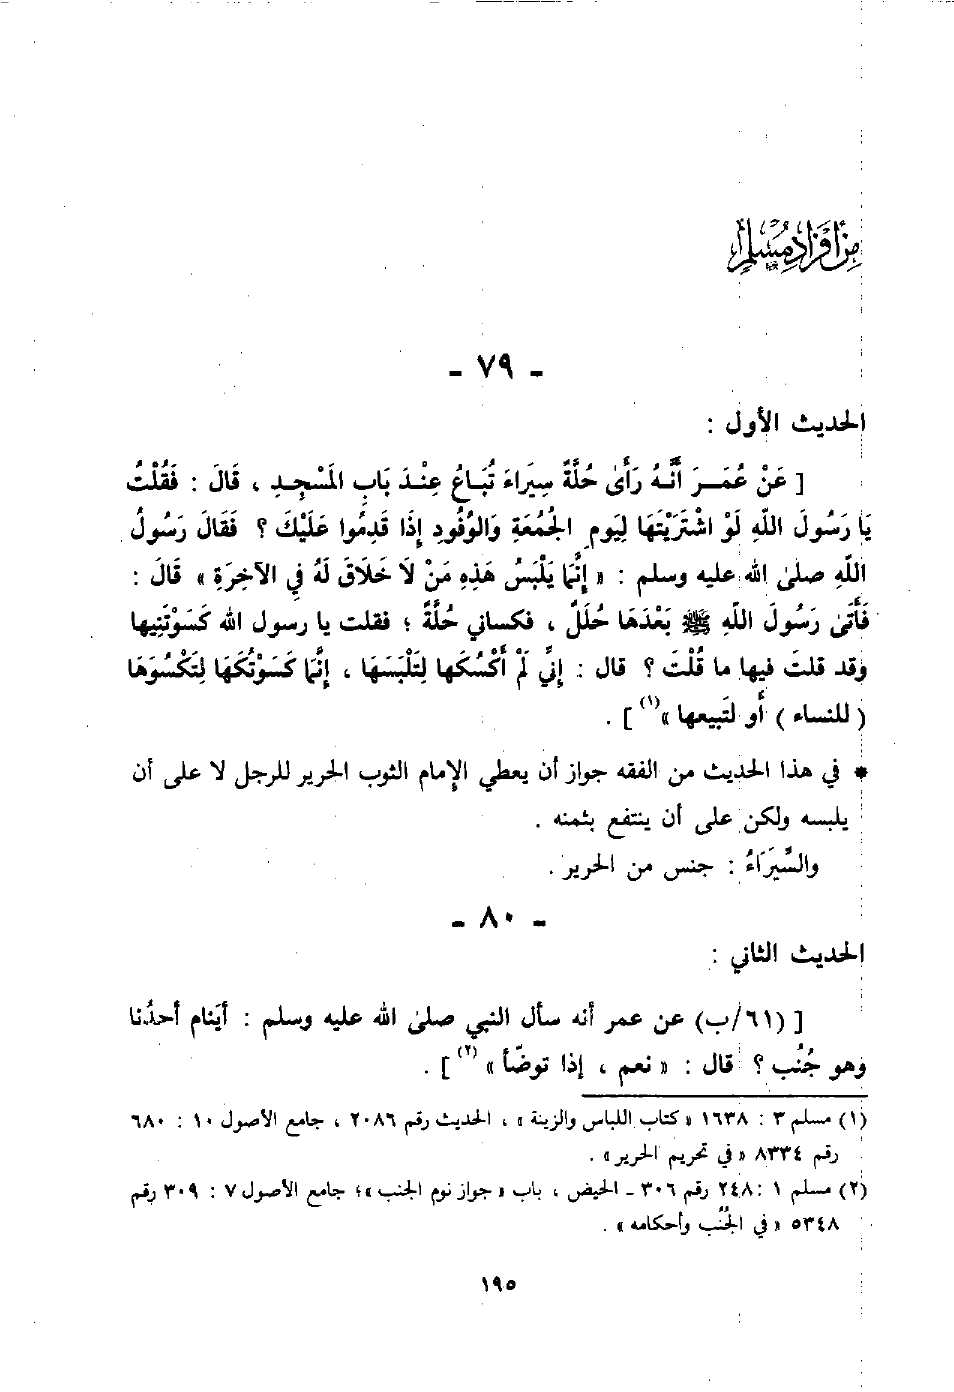 من أفراد مسلم
- ٧٩ -
الحديث الأول :
[ عَنْ عُمَـرَ أَنَّـهُ رَأَىٰ حُلَّةً سِيَرَاءَ تُبَـاعُ عِنْـدَ بَابِ المَسْجِـدِ ، قَالَ : فَقُلْتُ
يَا رَسُولَ اللَّهِ لَوْ اشْتَرَيْتَهَا لِيَومِ الجُمُعَةِ وَالوُفُودِ إِذَا قَدِمُوا عَلَيْكَ ؟ فَقَالَ رَسُولُ
اللَّهِ صلىٰ الله عليه وسلم : « إِنَّمَا يَلْبَسُ هَذِهِ مَنْ لَا خَلَاقَ لَهُ فِي الآخِرَةِ » قَالَ :
فَأَتَىٰ رَسُولَ اللَّهِ ﷺ بَعْدَهَا حُلَلٌ ، فكساني حُلَّةً ؛ فقلت يا رسول الله كَسَوْتَنِيها
وقد قلتَ فيها ما قُلْتَ ؟ قال : إِنِّي لَمْ أَكْسُكَها لِتَلْبَسَهَا ، إِنَّمَا كَسَوْتُكَهَا لِتَكْسُوَهَا
( للنساء ) أو لتَبِيعها »(١) ] .
* في هذا الحديث من الفقه جواز أن يعطي الإمام الثوب الحرير للرجل لا على أن
يلبسه ولكن على أن ينتفع بثمنه .
والسِّيَرَاءُ : جنس من الحرير .
- ٨٠ -
الحديث الثاني :
[ (٦١/ب) عن عمر أنه سأل النبي صلىٰ الله عليه وسلم : أيَنام أحدُنا
وهو جُنُب ؟ قال : « نعم ، إذا توضّأ »(٢) ] .
(١) مسلم ٣ : ١٦٣٨ « كتاب اللباس والزينة » ، الحديث رقم ٢٠٨٦ ، جامع الأصول ١٠ : ٦٨٠
رقم ٨٣٣٤ « في تحريم الحرير » .
(٢) مسلم ١ : ٢٤٨ رقم ٣٠٦ ـ الحيض ، باب « جواز نوم الجنب » ؛ جامع الأصول ٧ : ٣٠٩ رقم
٥٣٤٨ « في الجُنُب وأحكامه » .
١٩٥